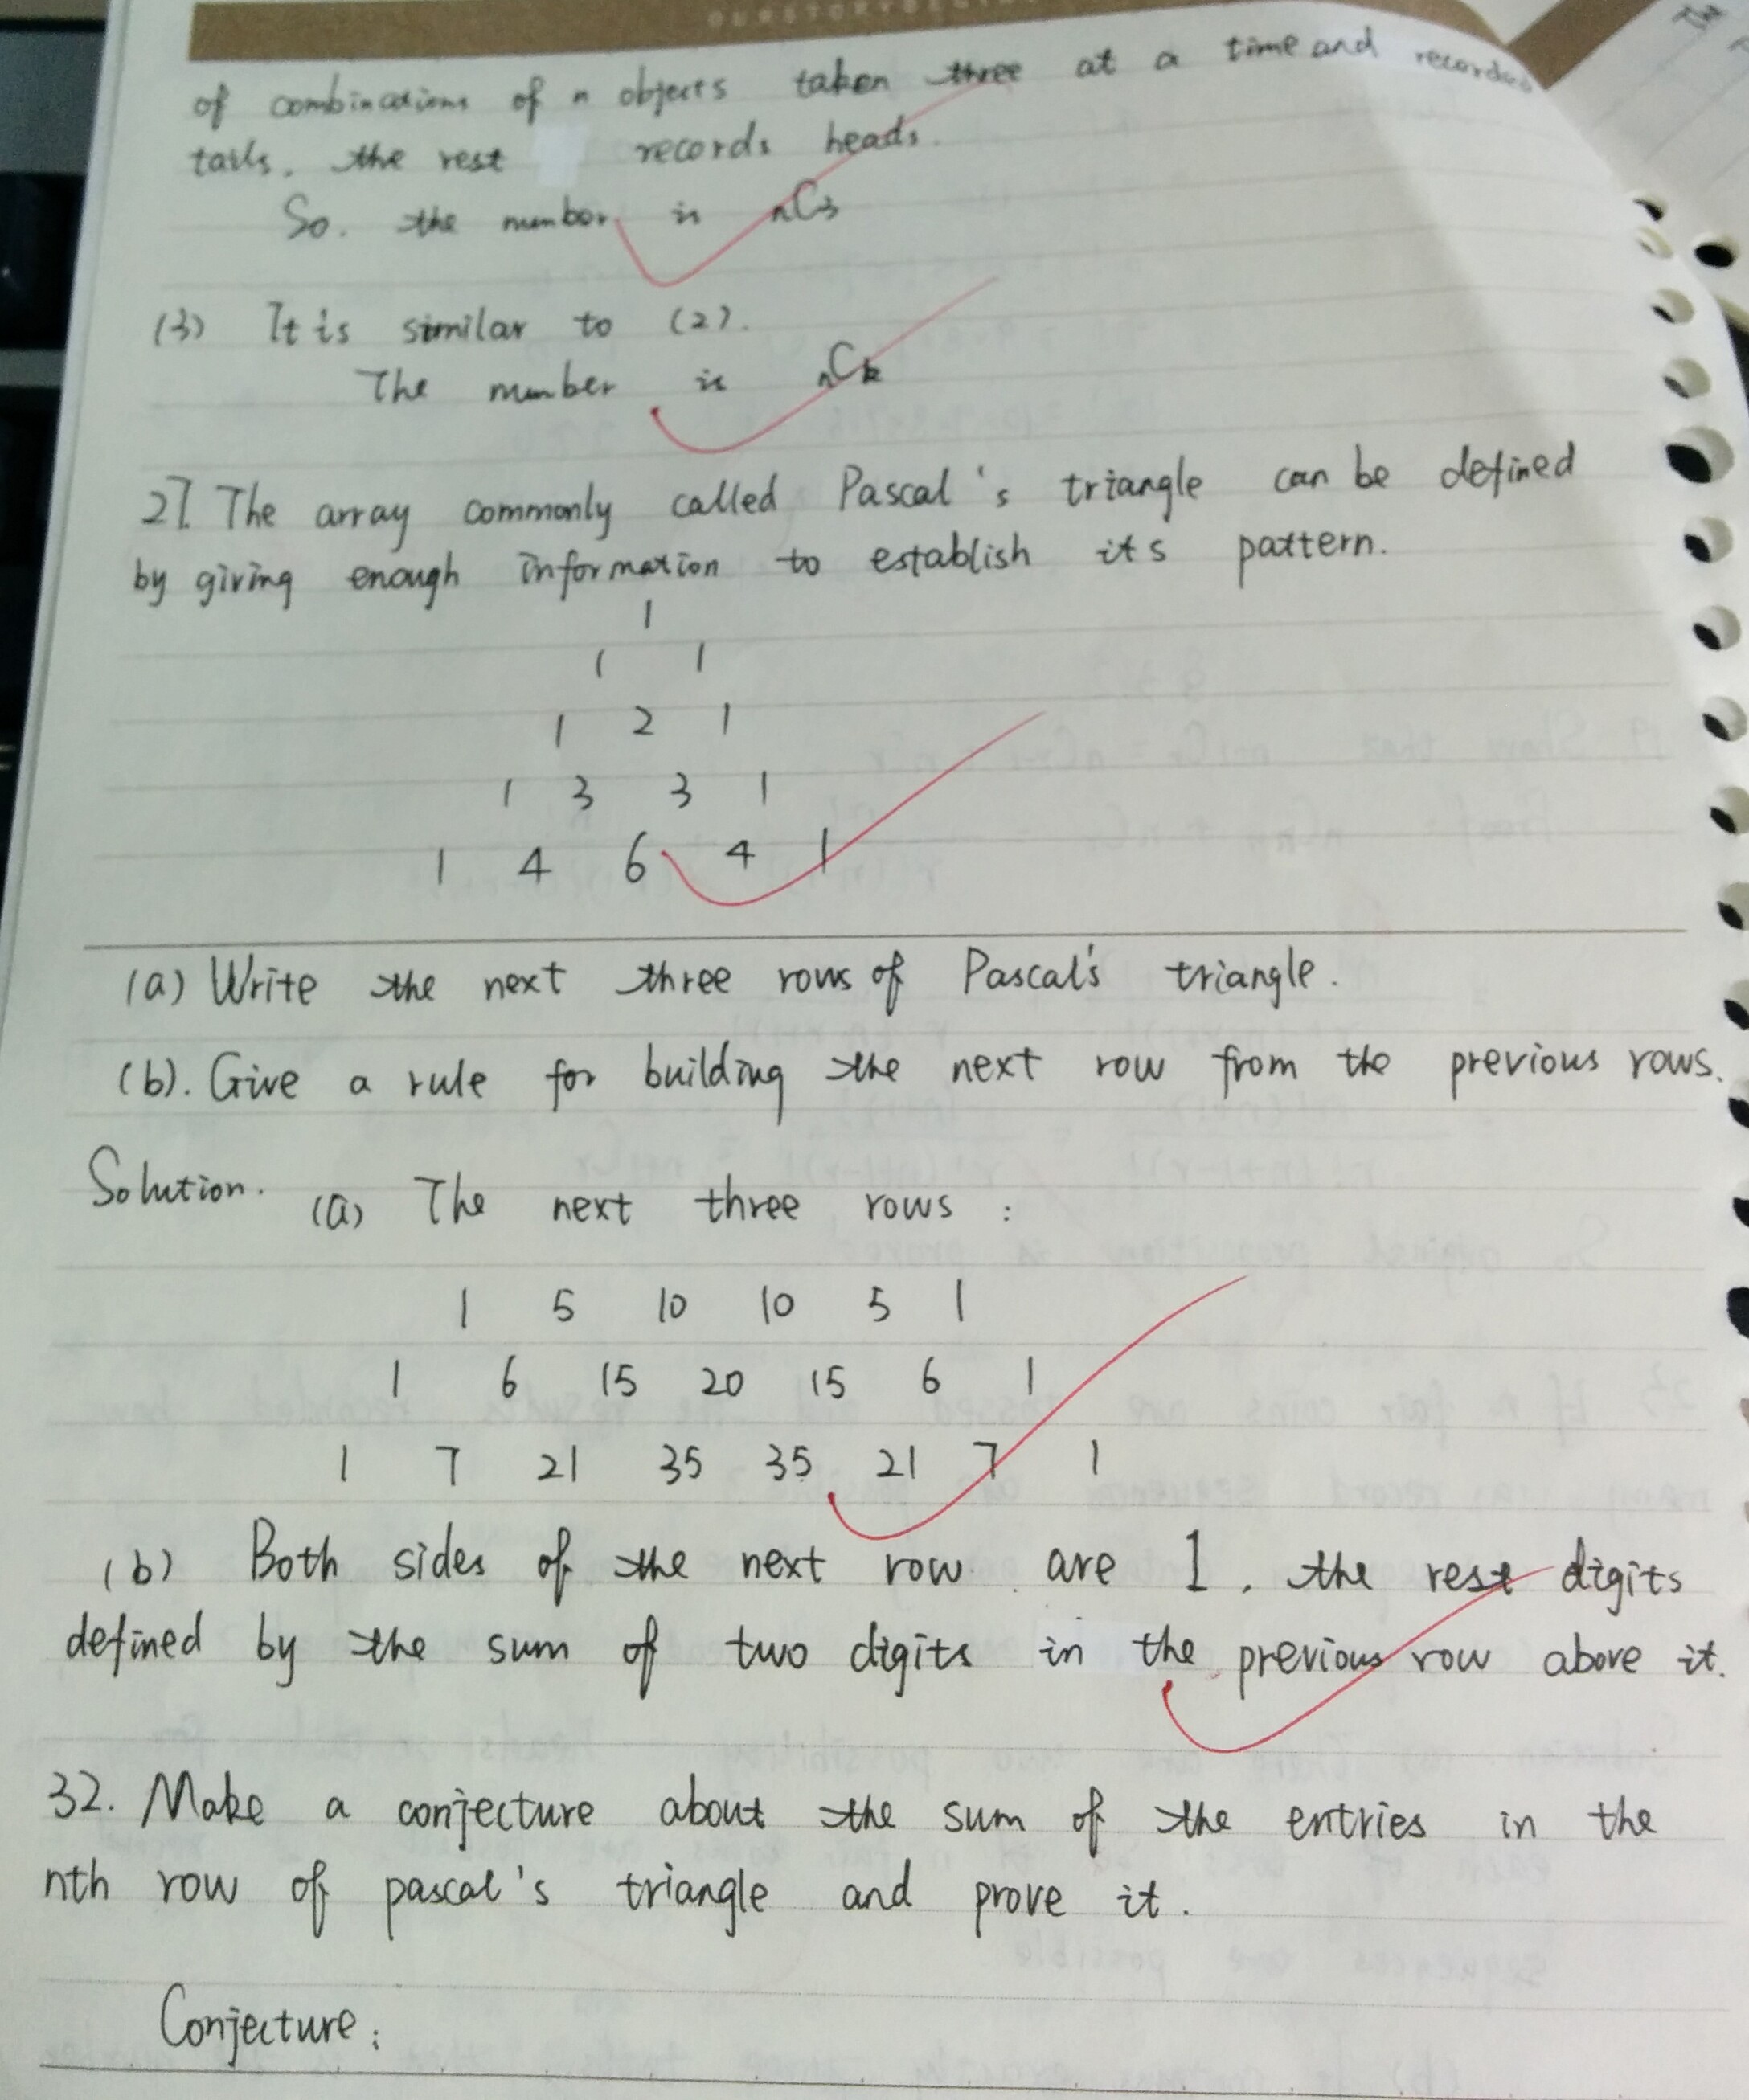 of combinations of n objects taken three at a time and recorded
tails. the rest records heads.
So. the number is nC3
(3) It is similar to (2).
The number is nCk
27. The array commonly called Pascal's triangle can be defined
by giving enough information to establish its pattern.
1
1 1
1 2 1
1 3 3 1
1 4 6 4 1
(a) Write the next three rows of Pascal's triangle.
(b). Give a rule for building the next row from the previous rows.
Solution. (a) The next three rows :
1 5 10 10 5 1
1 6 15 20 15 6 1
1 7 21 35 35 21 7 1
(b) Both sides of the next row are 1. the rest digits
defined by the sum of two digits in the previous row above it.
32. Make a conjecture about the sum of the entries in the
nth row of pascal's triangle and prove it.
Conjecture: